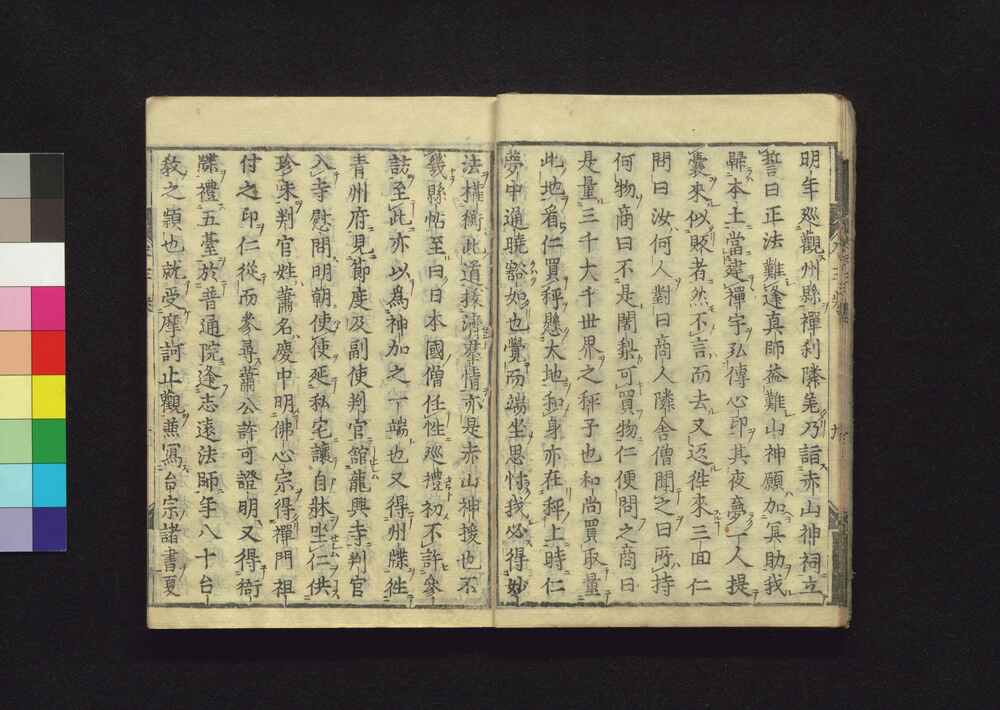 明年巡觀州縣禪刹隣羌乃詣赤山神祠立
誓曰正法難逢真師益難山神願加冥助我
歸本土當建禪宇弘傳心印其夜夢一人提
囊來似販者然不言而去又迄徃來三囬仁
問曰汝何人對曰商人隣舍僧聞之曰所持
何物商曰不是闍梨可買物仁便問之商曰
是量三千大千世界之秤子也和尚買取量
此地看仁買秤懸大地和身亦在秤上時仁
夢中通曉豁如也覺而端坐思忖我必得妙
法權衡此道救濟羣情亦是赤山神援也不
幾縣帖至曰日本國僧任性巡禮初不許參
訪至此亦以為神加之一端也又得州牒徃
青州府見節度及副使判官舘龍興寺判官
入寺慰問明朝使便延私宅讓自牀坐仁供
珍朱判官姓蕭名慶中明佛心宗得禪門祖
付之印仁從而參尋蕭公許可證明又得衙
牒禮五臺於普通院逢志遠法師年八十台
教之頴也就受摩訶止觀兼寫台宗諸書夏